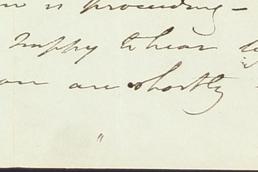 is proceeding -
happy to hear
are shortly
"